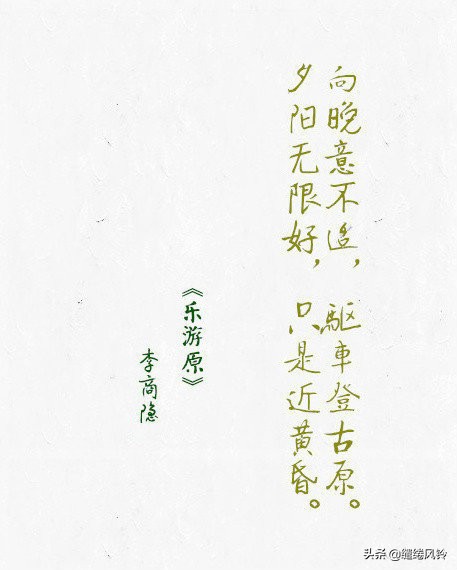 向晚意不适，駆車登古原。
夕阳无限好，只是近黄昏。
《乐游原》
李商隐
头条 @缱绻风铃